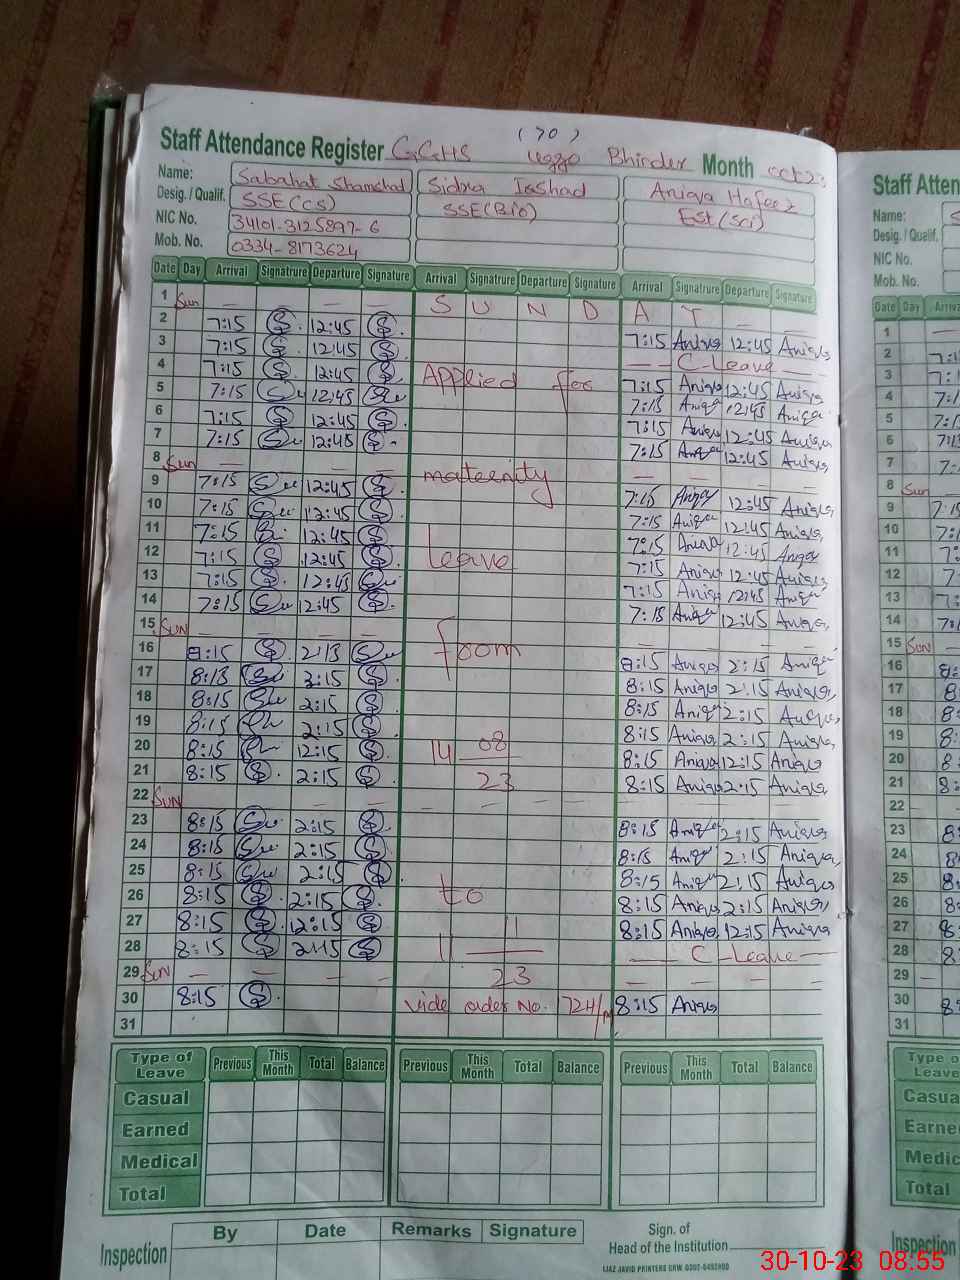 ( 70 )
Staff Attendance Register GGHS Uggo Bhinder Month Oct 23
Name: Sabahat Shamshad Sidra Irshad Aniqa Hafeez
Desig. / Qualif. SSE(CS) SSE(Bio) Est (Sci)
NIC No. 34101-3125897-6
Mob. No. 0334-8173624
Date Day Arrival Signatrure Departure Signature Arrival Signatrure Departure Signature Arrival Signatrure Departure Signature
1 Sun — — — — S U N D A Y — —
2 7:15 12:45 7:15 Aniqa 12:45 Aniqa
3 7:15 12:45 — C-Leave —
4 7:15 12:45 Applied for 7:15 Aniqa 12:45 Aniqa
5 7:15 12:45 7:15 Aniqa 12:45 Aniqa
6 7:15 12:45 7:15 Aniqa 12:45 Aniqa
7 7:15 12:45 7:15 Aniqa 12:45 Aniqa
8 Sun — — — — — — — —
9 7:15 12:45 maternity 7:15 Aniqa 12:45 Aniqa
10 7:15 12:45 7:15 Aniqa 12:45 Aniqa
11 7:15 12:45 Leave 7:15 Aniqa 12:45 Aniqa
12 7:15 12:45 7:15 Aniqa 12:45 Aniqa
13 7:15 12:45 7:15 Aniqa 12:45 Aniqa
14 7:15 12:45 7:15 Aniqa 12:45 Aniqa
15 SUN — — — — — — — —
16 8:15 2:15 from 8:15 Aniqa 2:15 Aniqa
17 8:15 2:15 8:15 Aniqa 2:15 Aniqa
18 8:15 2:15 8:15 Aniqa 2:15 Aniqa
19 8:15 2:15 8:15 Aniqa 2:15 Aniqa
20 8:15 12:15 14 08 8:15 Aniqa 12:15 Aniqa
21 8:15 2:15 23 8:15 Aniqa 2:15 Aniqa
22 SUN — — — — — — — —
23 8:15 2:15 8:15 Aniqa 2:15 Aniqa
24 8:15 2:15 8:15 Aniqa 2:15 Aniqa
25 8:15 2:15 8:15 Aniqa 2:15 Aniqa
26 8:15 2:15 to 8:15 Aniqa 2:15 Aniqa
27 8:15 12:15 11 8:15 Aniqa 12:15 Aniqa
28 8:15 2:15 11 — C-Leave —
29 SUN — — — — 23 — — — —
30 8:15 vide order No. 724/M 8:15 Aniqa
31
Type of Leave Previous This Month Total Balance Previous This Month Total Balance Previous This Month Total Balance
Casual
Earned
Medical
Total
Inspection By Date Remarks Signature
Sign. of
Head of the Institution
IJAZ JAVID PRINTERS GRW.
Staff Atten
Name:
Desig. / Qualif.
NIC No.
Mob. No.
Date Day Arriva
1
2
3
4
5
6
7
8 Sun
9
10
11
12
13
14
15 Sun
16
17
18
19
20
21
22
23
24
25
26
27
28
29
30
31
Type o
Leave
Casua
Earne
Medic
Total
Inspection
30-10-23 08.55